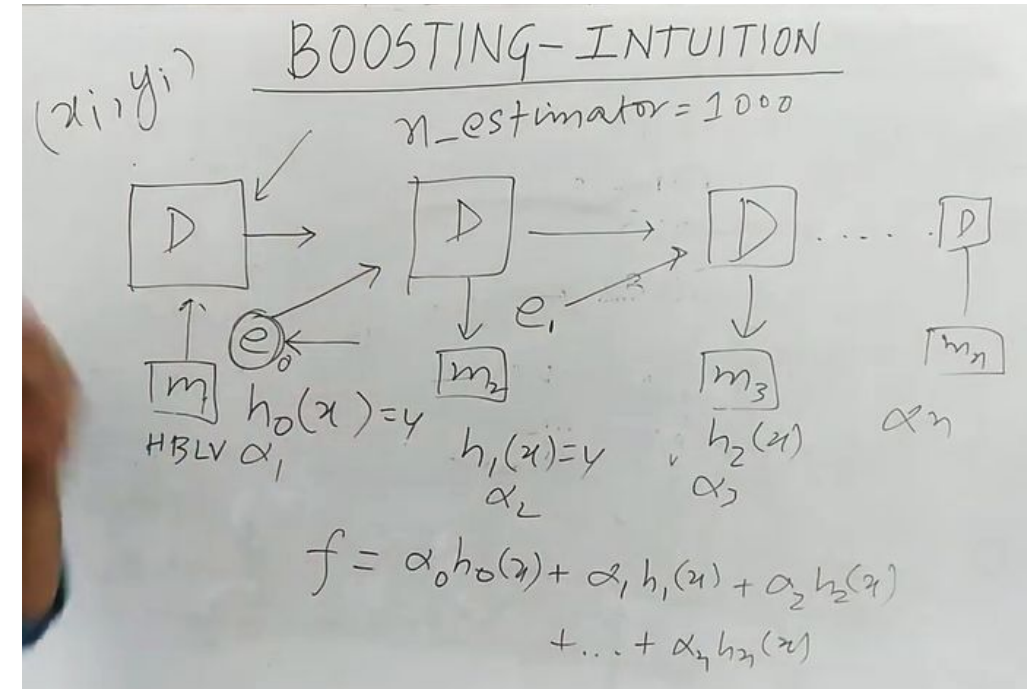 BOOSTING-INTUITION
(xi, yi)
n_estimator=1000
D D D ..... D
e0 e1
m1 m2 m3 mn
h0(x)=y h1(x)=y h2(x) αn
HBLV α1 α2 α3
f = α0h0(x) + α1h1(x) + α2h2(x)
+...+ αnhn(x)